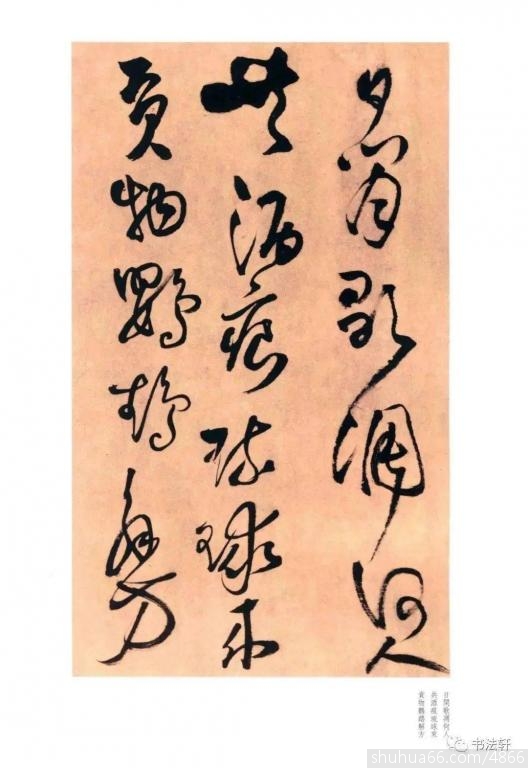 日間歌調何人
共酒痕琉球來
貢物鸚鵡解方
日間歌調何人
共酒痕琉球來
貢物鸚鵡解方
书法轩
shuhua66.com/4866